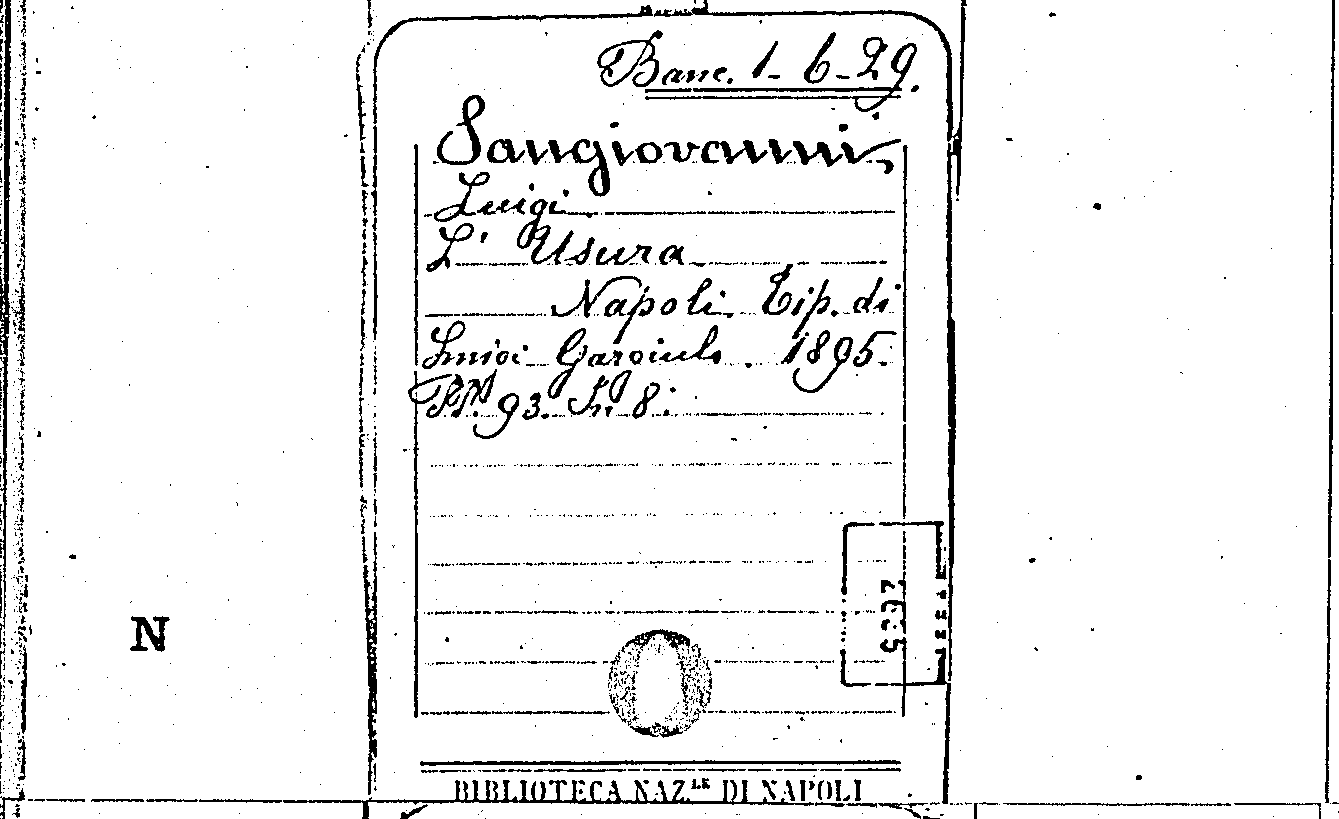 Banc. 1-6-29.
Sangiovanni,
Luigi
L' Usura
Napoli Tip. di
Luigi Garciulo. 1895.
PP. 93. In 8:
N
BIBLIOTECA NAZ.LE DI NAPOLI